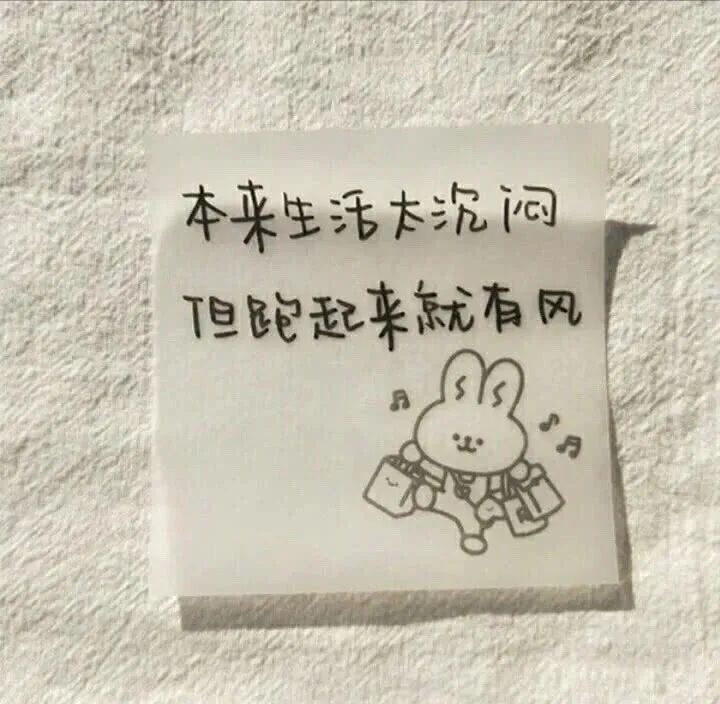 本来生活太沉闷
但跑起来就有风